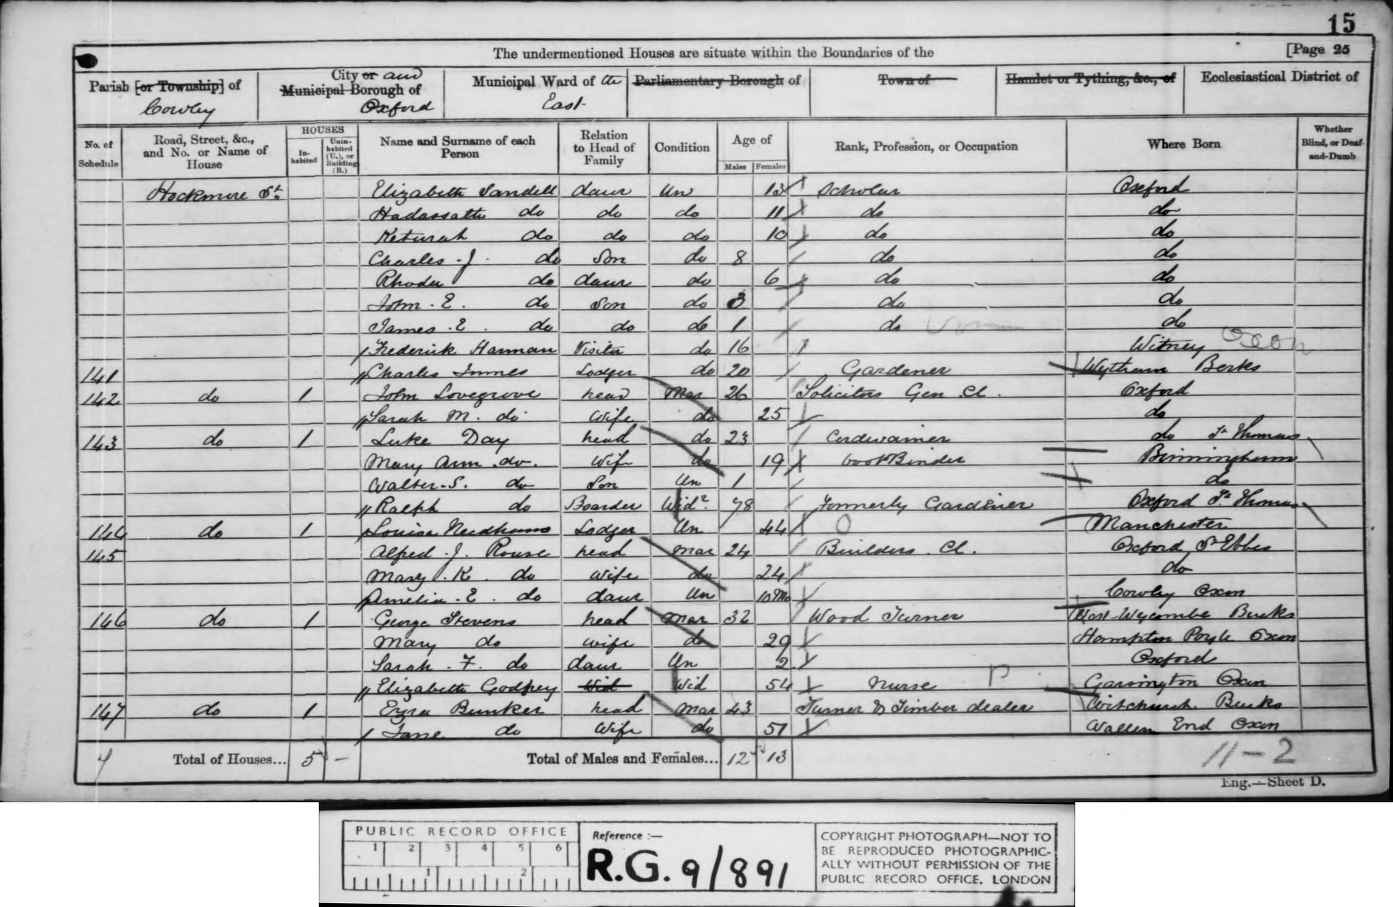 15
The undermentioned Houses are situate within the Boundaries of the [Page 25
Parish [or Township] of City or and Municipal Borough of Municipal Ward of the Parliamentary Borough of Town of Hamlet or Tything, &c., of Ecclesiastical District of
Cowley Oxford East
No. of Schedule Road, Street, &c., and No. or Name of House HOUSES In-habited Unin-habited (U.), or Building (B.) Name and Surname of each Person Relation to Head of Family Condition Age of Males Females Rank, Profession, or Occupation Where Born Whether Blind, or Deaf-and-Dumb
Hockmore St. Elizabeth Sandell daur Un 13 Scholar Oxford
Hadassath do do do 11 do do
Keturah do do do 10 do do
Charles . J. do Son do 8 do do
Rhoda do daur do 6 do do
John . E. do Son do 3 do do
James . E. do do do 1 do do
Frederick Harman Visitor do 16 Witney Oxon
141 Charles Innes Lodger do 20 Gardener Wytham Berks
142 do 1 John Lovegrove head Mar 26 Solicitors Gen Cl. Oxford
Sarah M. do Wife do 25 do
143 do 1 Luke Day head do 23 Cordwainer do St Thomas
Mary Ann do. Wife do 19 bookBinder Birmingham
Walter . S. do Son Un 1 do
Ralph do Boarder Widr. 78 Formerly Gardener Oxford St Thomas
144 do 1 Louisa Needham Lodger Un 44 Manchester
145 Alfred . J. Rouse head Mar 24 Builders Cl. Oxford, St Ebbes
Mary . K. do Wife do 24 do
Amelia . E. do daur Un 10 Mo Cowley Oxon
146 do 1 George Stevens head Mar 32 Wood Turner West Wycombe Bucks
Mary do Wife do 29 Hampton Poyle Oxon
Sarah . F. do daur Un 2 Oxford
Elizabeth Godfrey Wid Wid 54 Nurse Garsington Oxon
147 do 1 Ezra Bunker head Mar 43 Turner & Timber dealer Witchurch Bucks
Jane do Wife do 51 End Oxon
4 Total of Houses... 5 – Total of Males and Females... 12 13 11–2
Eng.—Sheet D.
PUBLIC RECORD OFFICE
1 2 3 4 5 6
1 2
Reference :—
R.G. 9/891
COPYRIGHT PHOTOGRAPH—NOT TO
BE REPRODUCED PHOTOGRAPHIC-
ALLY WITHOUT PERMISSION OF THE
PUBLIC RECORD OFFICE, LONDON